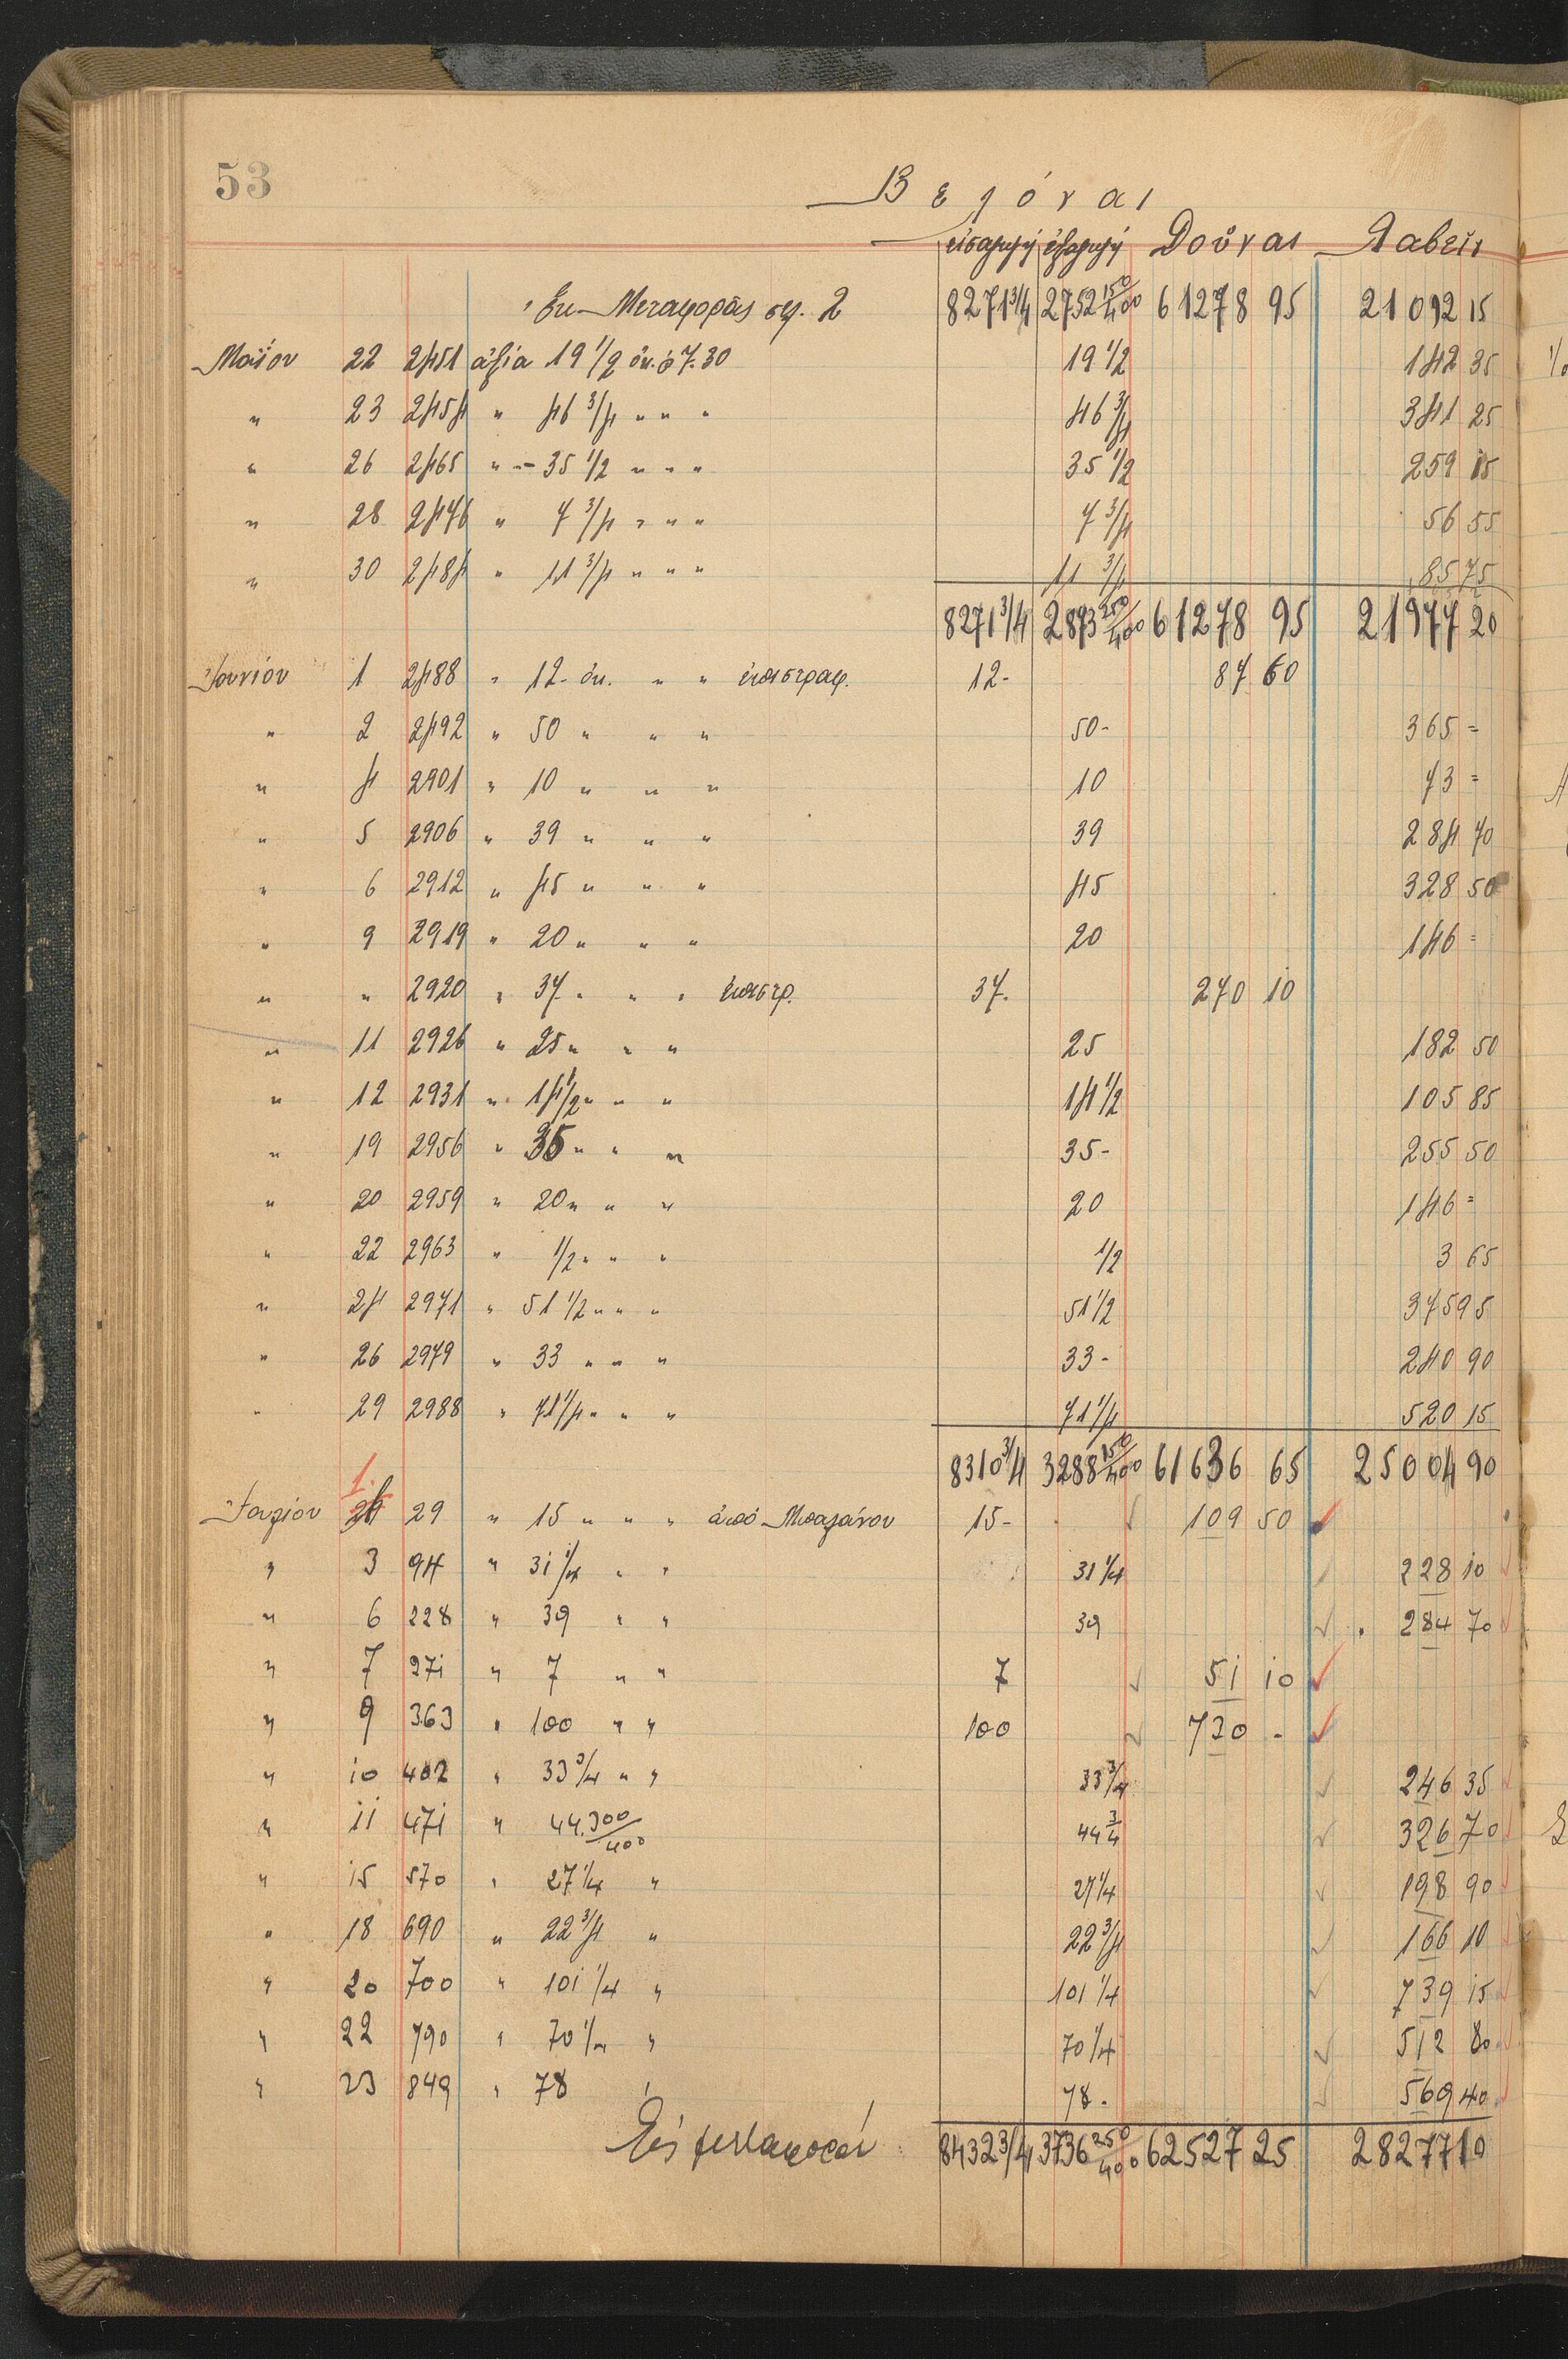 53
Βελόναι
εἰσαγωγή ἐξαγωγή Δοῦναι Λαβεῖν
Ἐκ Μεταφορᾶς σελ. 2 8271 3/4 2752 150/400 61278 95 21092 15
Μαΐου 22 2451 ἀξία 19 1/2 ὀκ. ὀ 7.30 19 1/2 142 35
" 23 2454 " 46 3/4 " " " 46 3/4 341 25
" 26 2465 " - 35 1/2 " " " 35 1/2 259 15
" 28 2476 " 7 3/4 " " " 7 3/4 56 55
" 30 2484 " 11 3/4 " " " 11 3/4 85 75
8271 3/4 2873 250/400 61278 95 21977 20
Ἰουνίου 1 2488 " 12- ὀκ. " " ἐπιστραφ. 12- 87 60
" 2 2492 " 50 " " " 50- 365 =
" 4 2901 " 10 " " " 10 73 =
" 5 2906 " 39 " " " 39 284 70
" 6 2912 " 45 " " " 45 328 50
" 9 2919 " 20 " " " 20 146 =
" " 2920 " 37 " " " ἐπιστρ. 37. 270 10
" 11 2926 " 25 " " " 25 182 50
" 12 2931 " 14 1/2 " " " 14 1/2 105 85
" 19 2956 " 35 " " " 35- 255 50
" 20 2959 " 20 " " " 20 146 =
" 22 2963 " 1/2 " " " 1/2 3 65
" 24 2971 " 51 1/2 " " " 51 1/2 375 95
" 26 2979 " 33 " " " 33- 240 90
" 29 2988 " 71 1/4 " " " 71 1/4 520 15
8310 3/4 3288 150/400 61636 65 25004 90
1.
Ἰουλίου 29 " 15 " " " ἀπό Μπαλάνου 15- 109 50
" 3 94 " 31 1/4 " " 31 1/4 228 10
" 6 228 " 39 " " 39 284 70
" 7 271 " 7 " " 7 51 10
" 9 363 " 100 " " 100 730 -
" 10 402 " 33 3/4 " " 33 3/4 246 35
" 11 471 " 44.300/400 44 3/4 326 70
" 15 570 " 27 1/4 " 27 1/4 198 90
" 18 690 " 22 3/4 " 22 3/4 166 10
" 20 700 " 101 1/4 " 101 1/4 739 15
" 22 790 " 70 1/4 " 70 1/4 512 80
" 23 849 " 78 " 78. 569 40
Εἰς μεταφοράν 8432 3/4 3736 250/400 62527 25 28277 10